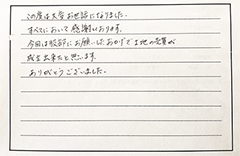 この度は大変お世話になりました。
すべてにおいて感謝しております。
今回は服部にお願いしたおかげで土地の売買が
成立出来たと思います。
ありがとうございました。